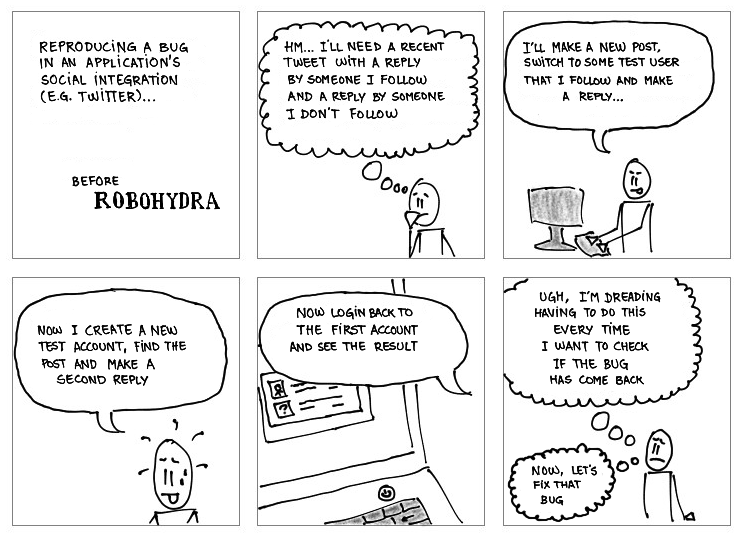 REPRODUCING A BUG
IN AN APPLICATION'S
SOCIAL INTEGRATION
(E.G. TWITTER)...
BEFORE
ROBOHYDRA
HM... I'LL NEED A RECENT
TWEET WITH A REPLY
BY SOMEONE I FOLLOW
AND A REPLY BY SOMEONE
I DON'T FOLLOW
I'LL MAKE A NEW POST,
SWITCH TO SOME TEST USER
THAT I FOLLOW AND MAKE
A REPLY...
NOW I CREATE A NEW
TEST ACCOUNT, FIND THE
POST AND MAKE A
SECOND REPLY
NOW LOGIN BACK TO
THE FIRST ACCOUNT
AND SEE THE RESULT
?
UGH, I'M DREADING
HAVING TO DO THIS
EVERY TIME
I WANT TO CHECK
IF THE BUG
HAS COME BACK
NOW, LET'S
FIX THAT
BUG